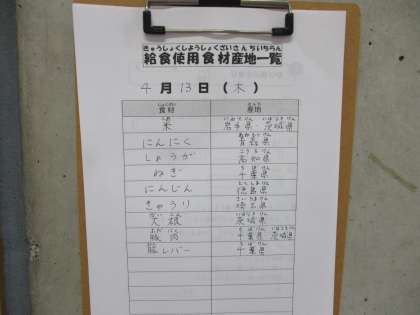 きゅうしょくしようしょくざいさんちいちらん
給食使用食材産地一覧
4月13日(木)
食材 産地
米 岩手県・茨城県
にんにく 青森県
しょうが 高知県
ねぎ 千葉県
にんじん 徳島県
きゅうり 埼玉県
大根 茨城県
豚肉 千葉県 茨城県
豚レバー 千葉県